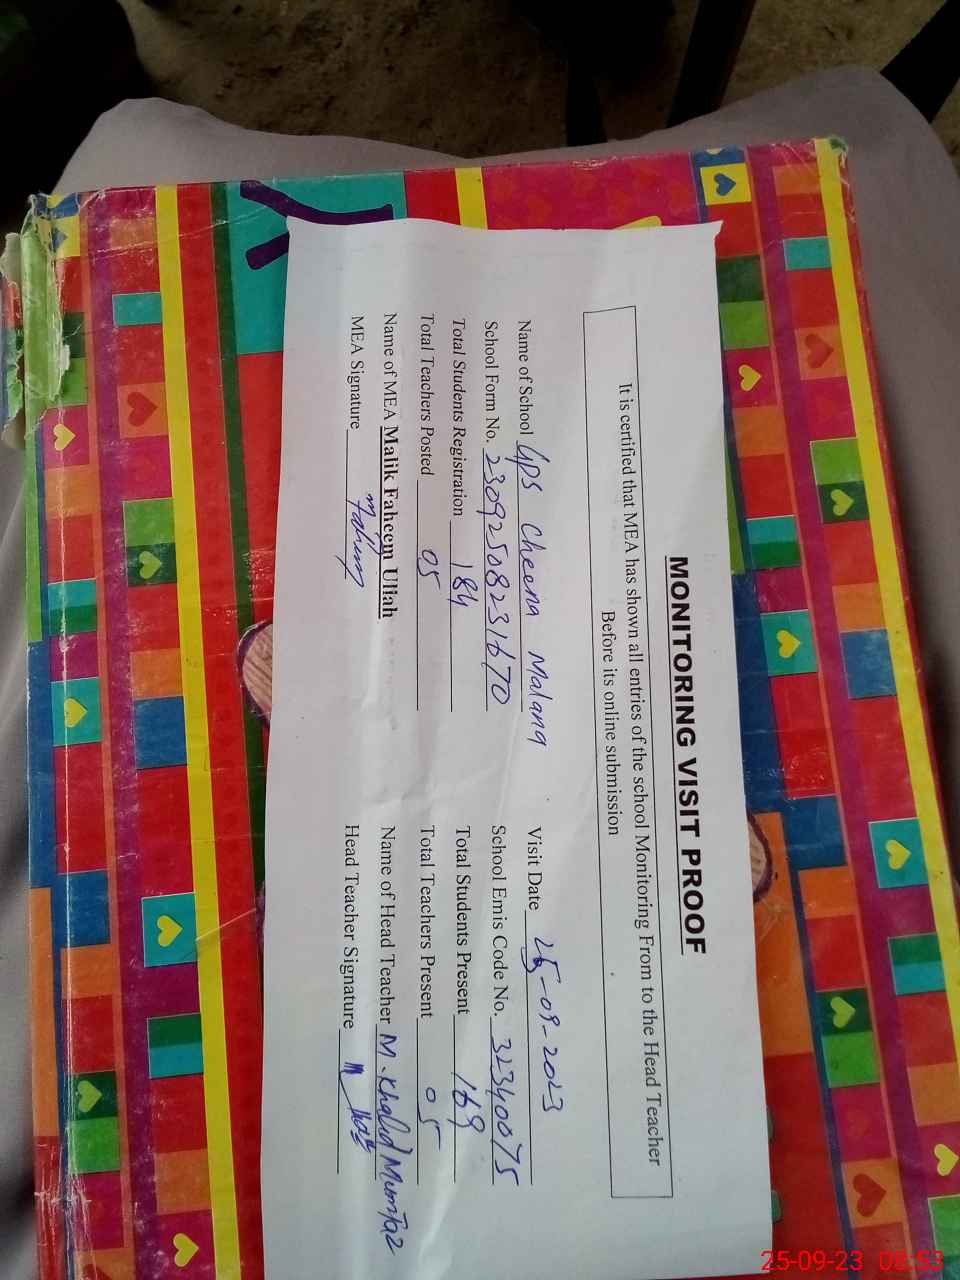 MONITORING VISIT PROOF
It is certified that MEA has shown all entries of the school Monitoring From to the Head Teacher
Before its online submission
Name of School GPS Cheena Malana Visit Date 25-09-2023
School Form No. 23092508231670 School Emis Code No. 32340075
Total Students Registration 184 Total Students Present 169
Total Teachers Posted 05 Total Teachers Present 05
Name of MEA Malik Faheem Ullah Name of Head Teacher M. Khalid Mumtaz
MEA Signature Head Teacher Signature
25-09-23 08:53